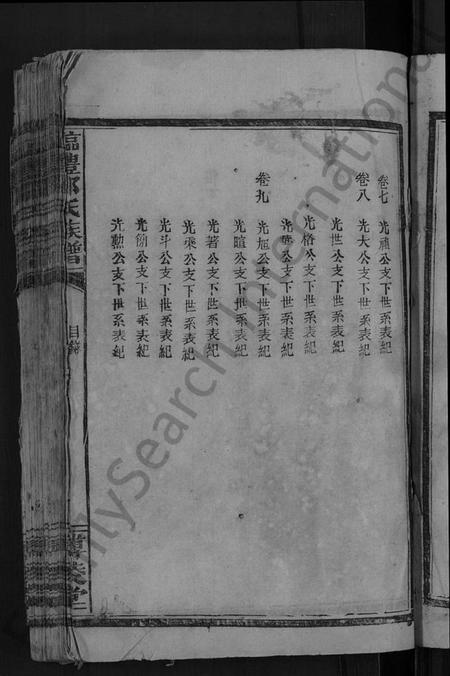 卷七 光禎公支下世系表紀
卷八 光大公支下世系表紀
光世公支下世系表紀
光裕公支下世系表紀
光華公支下世系表紀
卷九 光旭公支下世系表紀
光暄公支下世系表紀
光著公支下世系表紀
光乘公支下世系表紀
光斗公支下世系表紀
光勛公支下世系表紀
臨澧郭氏族譜
目錄
FamilySearch International